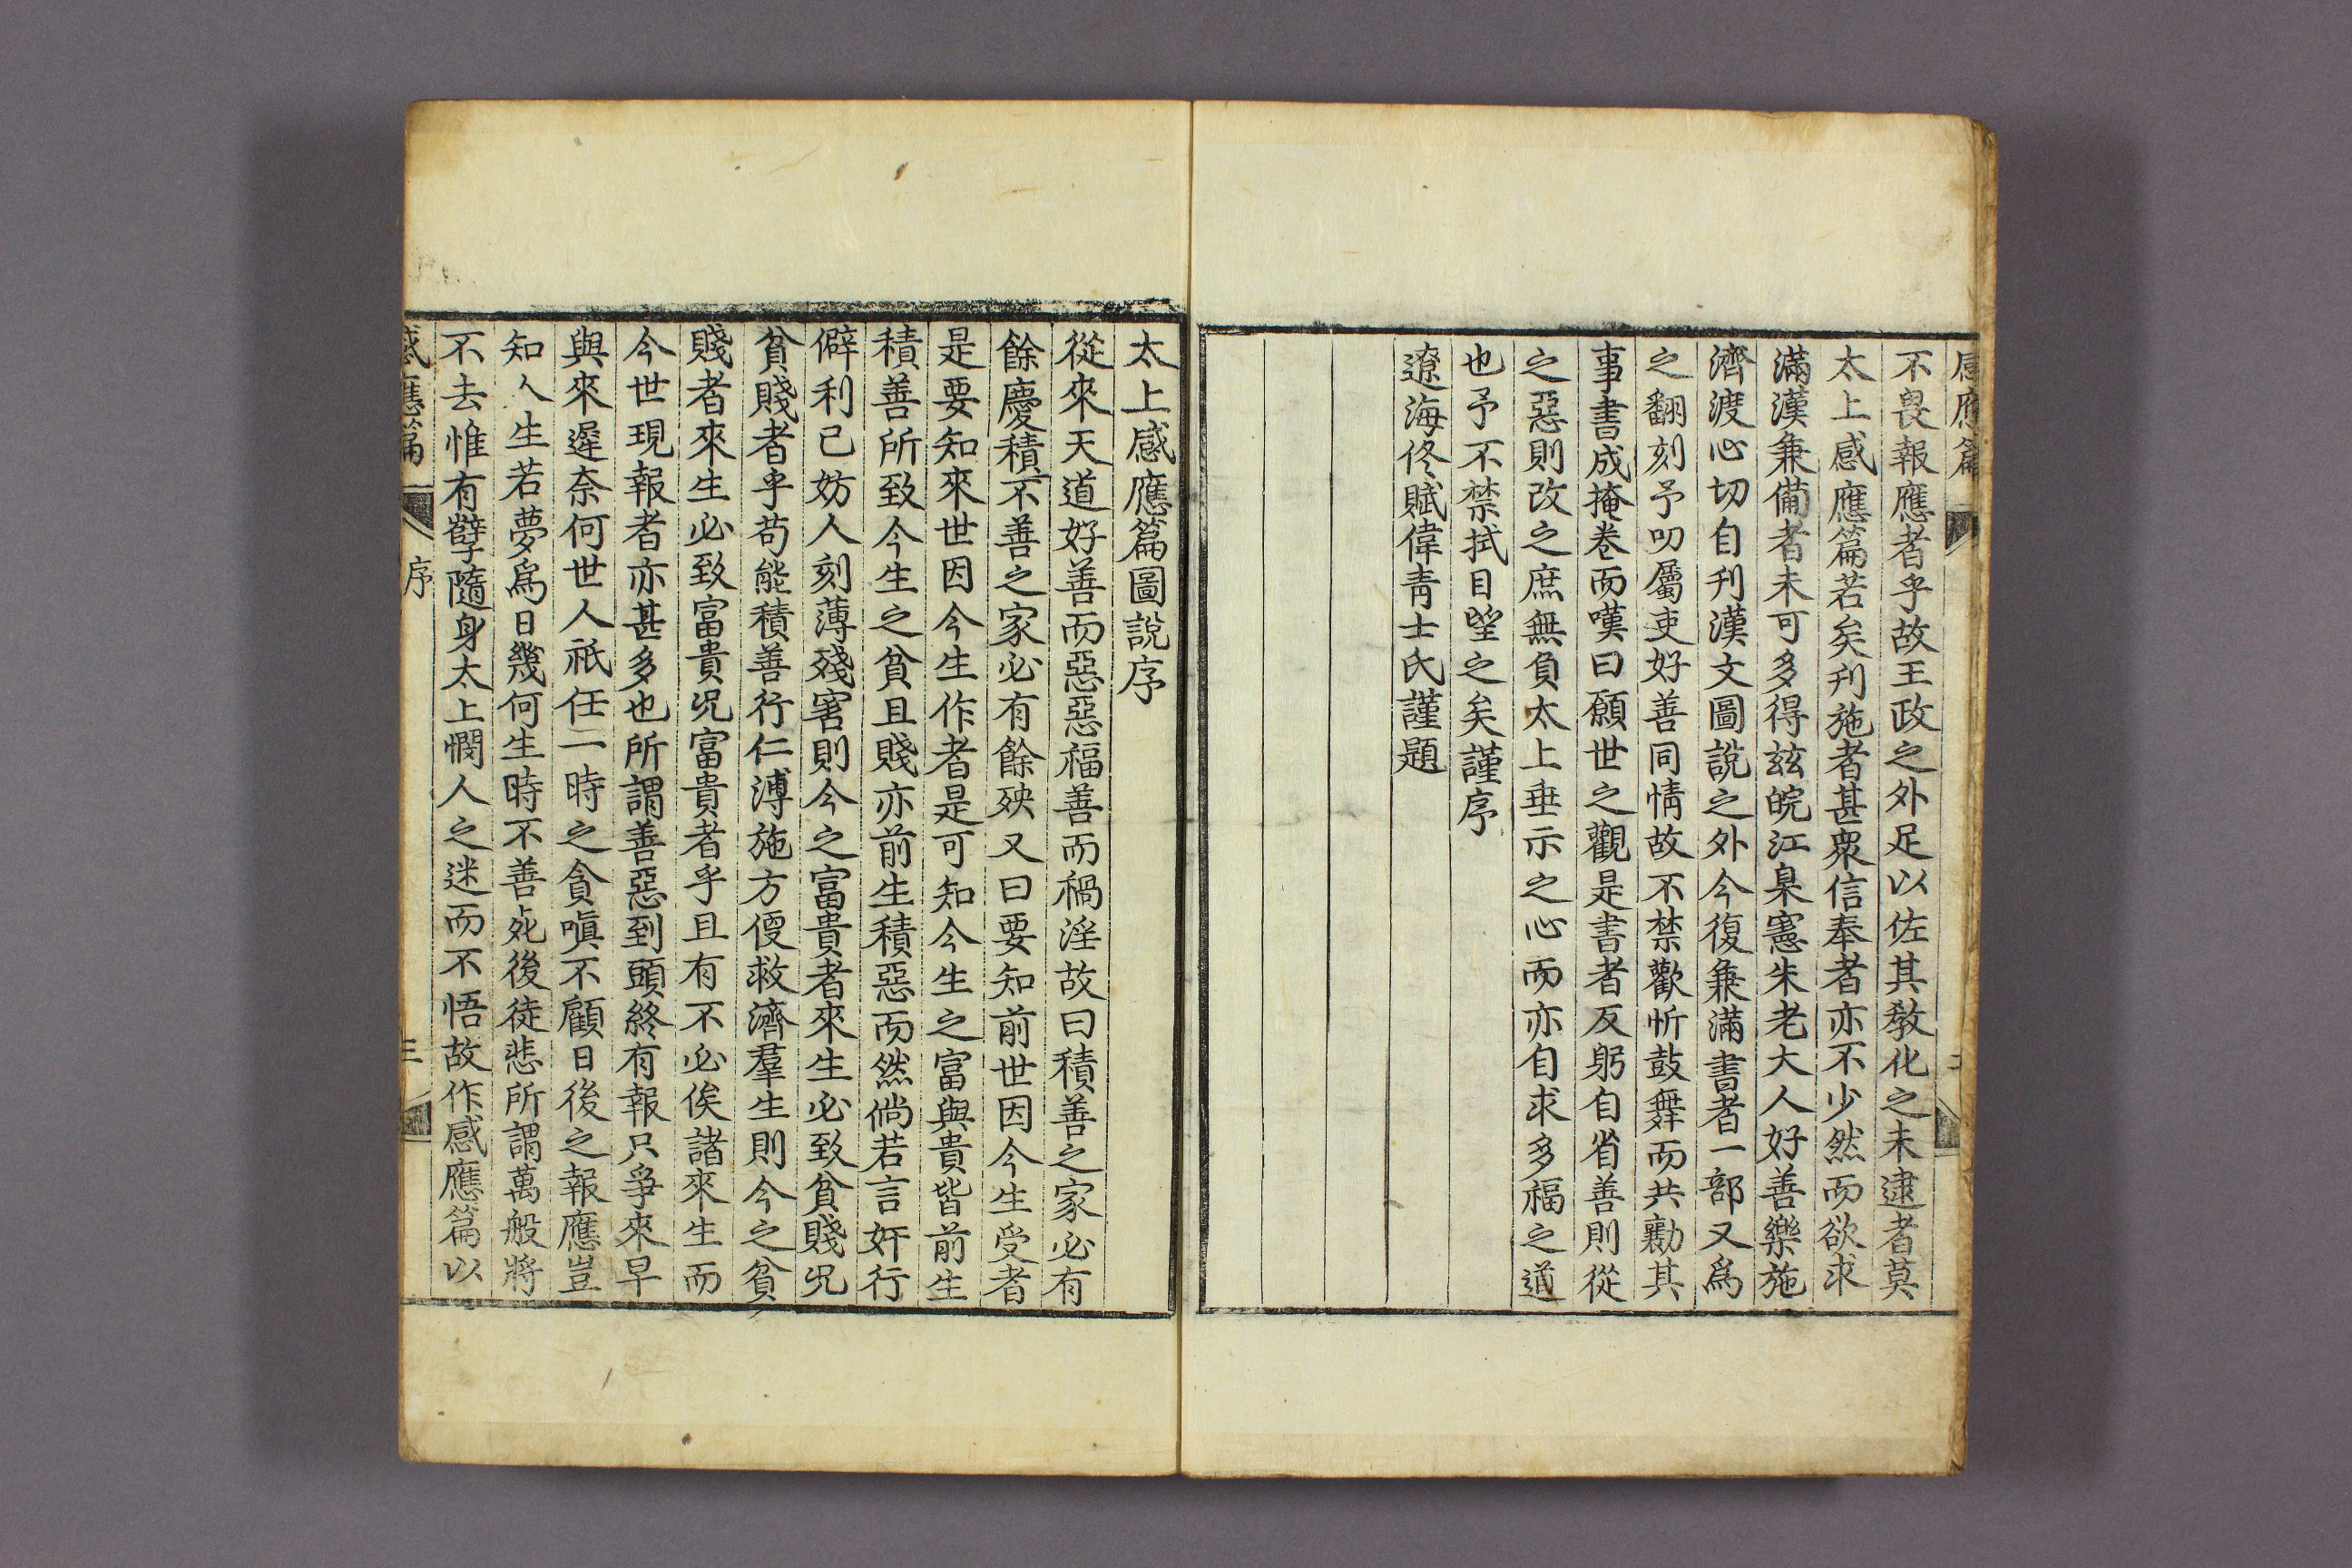 感應篇
二
不畏報應者乎故王政之外足以佐其教化之未逮者莫
太上感應篇若矣刋施者甚衆信奉者亦不少然而欲求
滿漢兼備者未可多得玆皖江臬憲朱老大人好善樂施
濟渡心切自刋漢文圖說之外今復兼滿書者一部又爲
之翻刻予叨屬吏好善同情故不禁歡忻鼓舞而共勷其
事書成掩卷而嘆曰願世之觀是書者反躬自省善則從
之惡則改之庶無負太上垂示之心而亦自求多福之道
也予不禁拭目望之矣謹序
遼海佟賦偉青士氏謹題
太上感應篇圖說序
從來天道好善而惡惡福善而禍淫故曰積善之家必有
餘慶積不善之家必有餘殃又曰要知前世因今生受者
是要知來世因今生作者是可知今生之富與貴皆前生
積善所致今生之貧且賤亦前生積惡而然倘若言奸行
僻利己妨人刻薄殘害則今之富貴者來生必致貧賤况
貧賤者乎苟能積善行仁溥施方便救濟羣生則今之貧
賤者來生必致富貴况富貴者乎且有不必俟諸來生而
今世現報者亦甚多也所謂善惡到頭終有報只爭來早
與來遲奈何世人祇任一時之貪嗔不顧日後之報應豈
知人生若夢爲日幾何生時不善死後徒悲所謂萬般將
不去惟有孽隨身太上憫人之迷而不悟故作感應篇以
感應篇
序
三